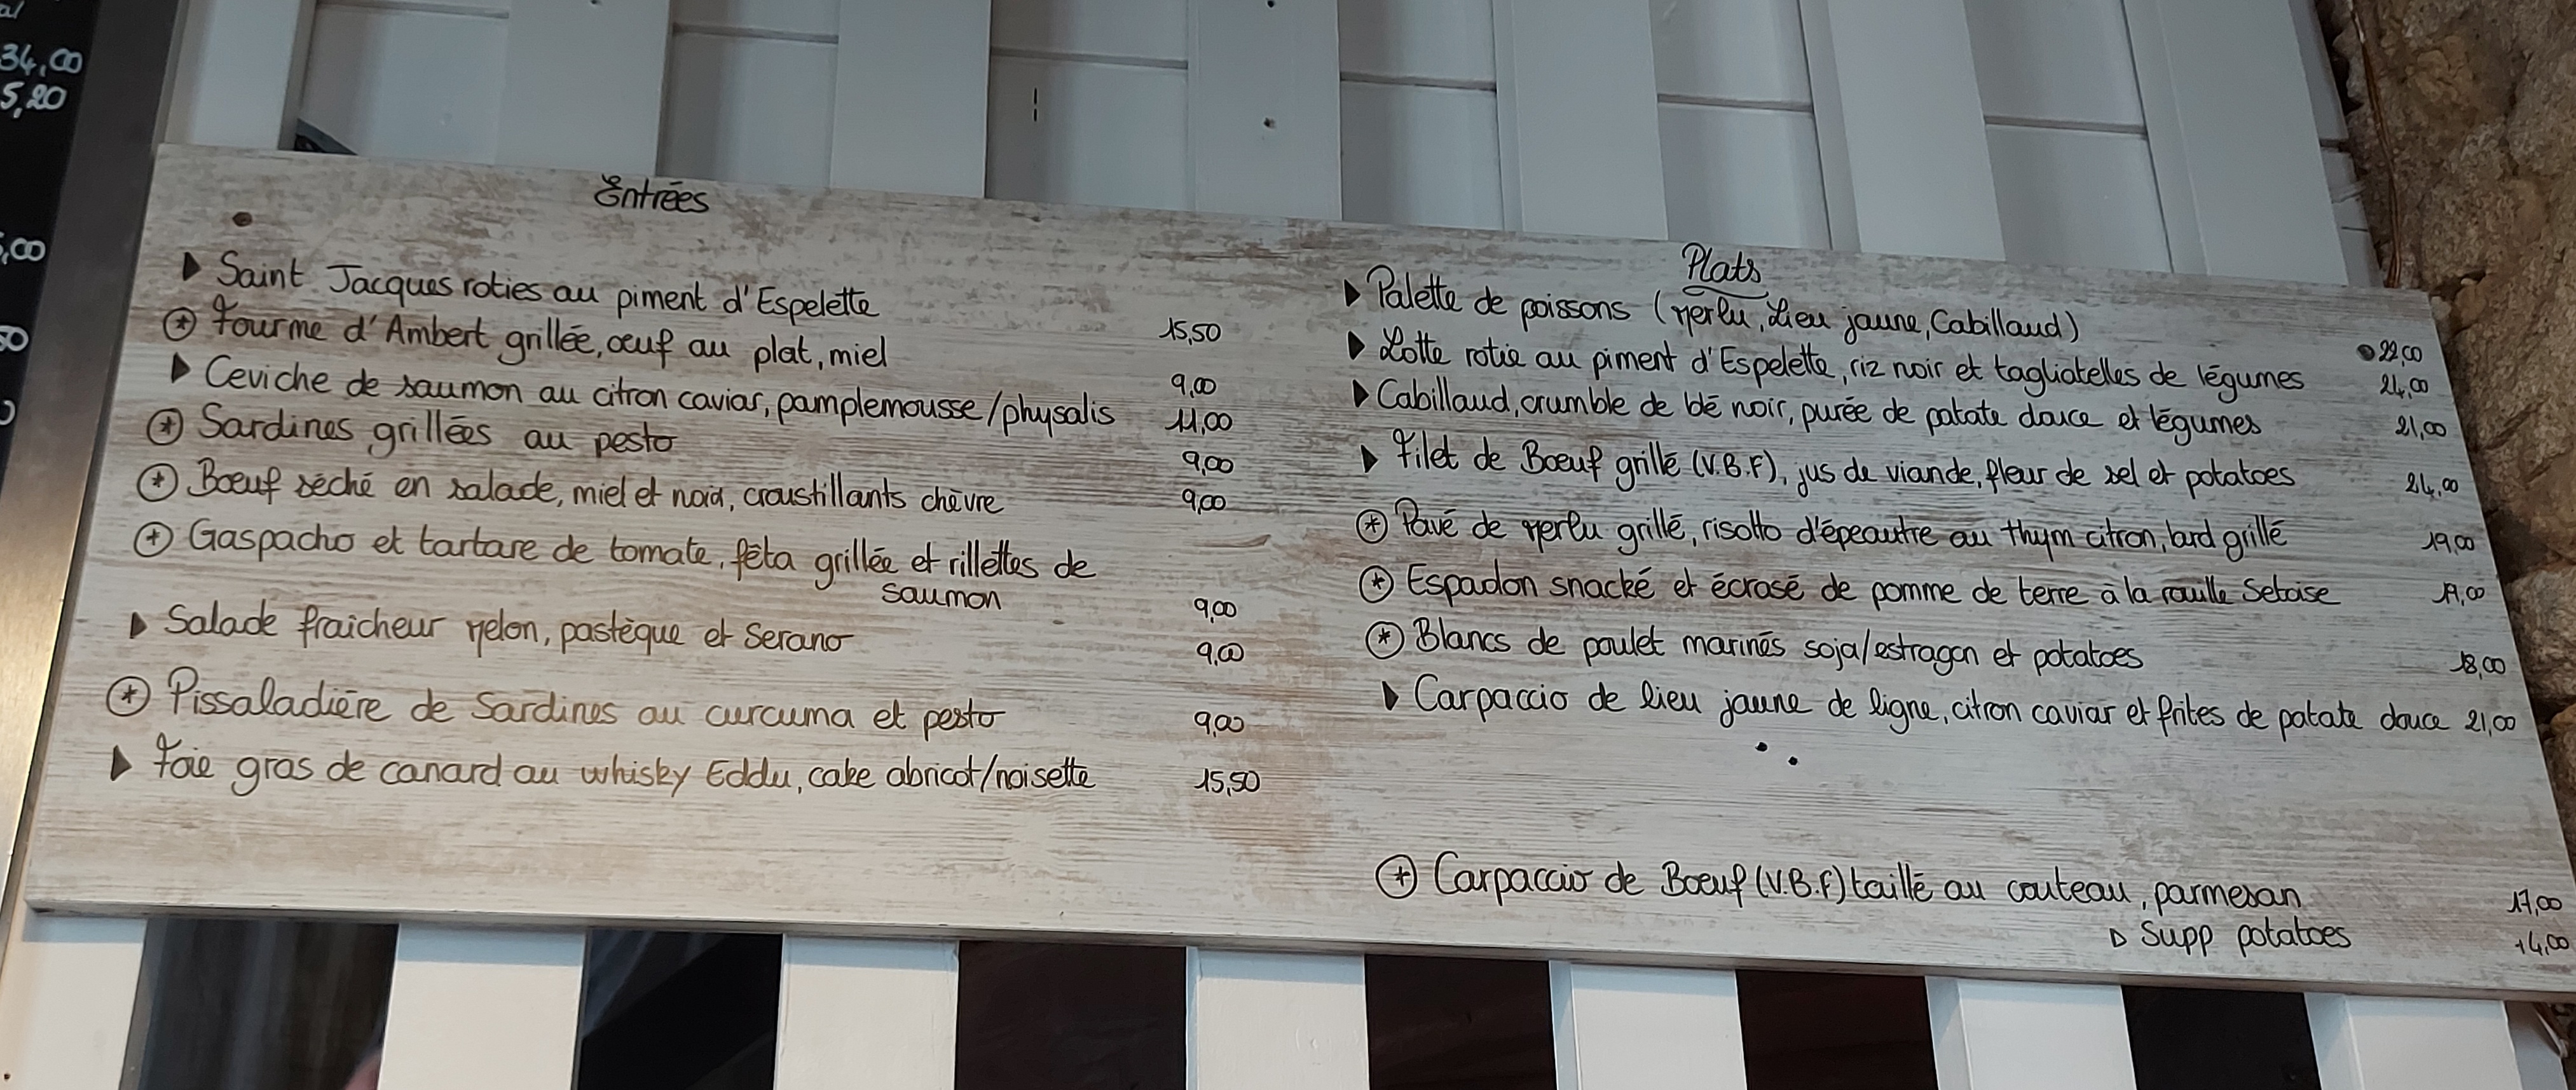 34,00
5,20
,00
50
Entrées
▶ Saint Jacques roties au piment d'Espelette 15,50
⊛ Fourme d'Ambert grillée, œuf au plat, miel 9,00
▶ Ceviche de saumon au citron caviar, pamplemousse/physalis 11,00
⊛ Sardines grillées au pesto 9,00
⊛ Bœuf séché en salade, miel et noix, croustillants chèvre 9,00
⊛ Gaspacho et tartare de tomate, féta grillée et rillettes de
saumon 9,00
▶ Salade fraicheur Melon, pastèque et Serano 9,00
⊛ Pissaladière de Sardines au curcuma et pesto 9,00
▶ Foie gras de canard au whisky Eddu, cake abricot/noisette 15,50
Plats
▶ Palette de poissons (Merlu, Lieu jaune, Cabillaud) 22,00
▶ Lotte rotie au piment d'Espelette, riz noir et tagliatelles de légumes 24,00
▶ Cabillaud, crumble de blé noir, purée de patate douce et légumes 21,00
▶ Filet de Bœuf grillé (V.B.F), jus de viande, fleur de sel et potatoes 24,00
⊛ Pavé de Merlu grillé, risotto d'épeautre au thym citron, lard grillé 19,00
⊛ Espadon snacké et écrasé de pomme de terre à la rouille Setoise 19,00
⊛ Blancs de poulet marinés soja/estragon et potatoes 18,00
▶ Carpaccio de lieu jaune de ligne, citron caviar et frites de patate douce 21,00
⊛ Carpaccio de Bœuf (V.B.F) taillé au couteau, parmesan 17,00
▷ Supp potatoes +4,00